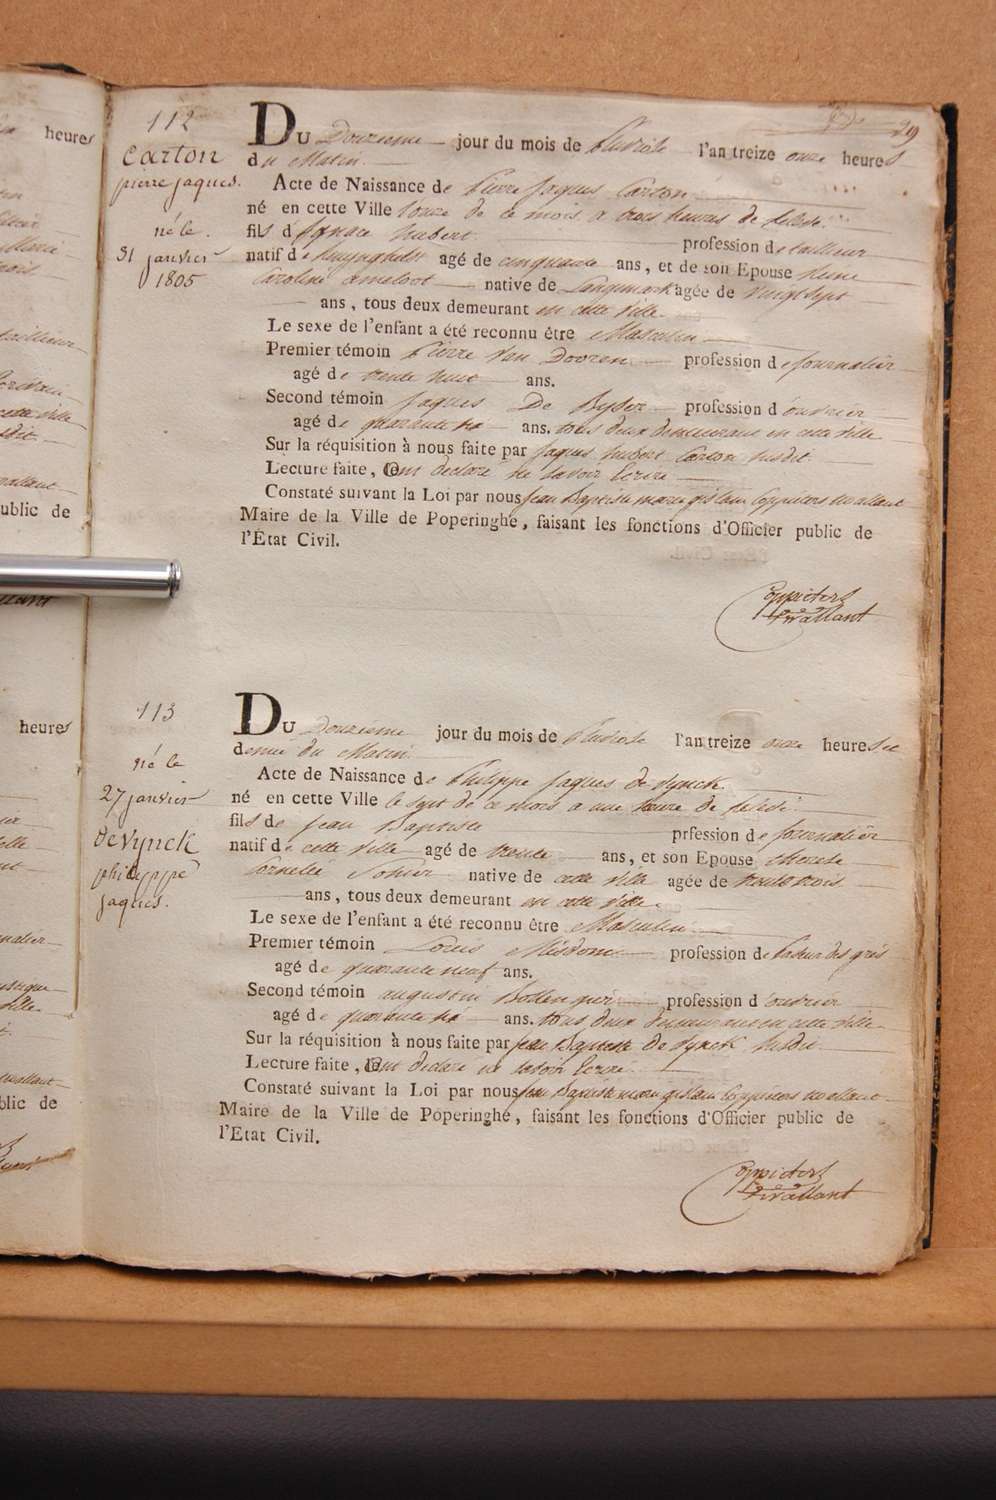 29
112
Carton
pierre jaques.
né le.
31 janvier
1805
Du Douzieme jour du mois de Pluviose l'an treize onze heures
du Matin.
Acte de Naissance de Pierre Jaques Carton
né en cette Ville Ionze de ce mois a trois heures de relevée.
fils d'Ignace hubert profession de tailleur
natif de Reuynghelst agé de cinquante ans, et de son Epouse
Caroline ameloot native de Langemark agée de vingt sept
ans, tous deux demeurant en cette ville.
Le sexe de l'enfant a été reconnu être Masculin
Premier témoin Pierre Van Dooren profession de journalier
agé de trente huit ans.
Second témoin Jaques De profession d'ouvrier
agé de quarante ans. tous deux demeurant en cette ville
Sur la réquisition à nous faite par Jaques hubert Carton susdit
Lecture faite, ont declaré ne savoir Ecrire
Constaté suivant la Loi par nous Jean Baptiste marie gislain Coppieters wallant
Maire de la Ville de Poperinghe, faisant les fonctions d'Officier public de
l'État Civil.
Coppieters
Wallant
113
né le
27 janvier
deVynck
philyppe
jaques.
Du Douzieme jour du mois de Pluviose l'an treize onze heures et
demie du Matin.
Acte de Naissance de Philippe Jaques de Vynck
né en cette Ville le sept de ce mois a une heure de relevée
fils de Jean Baptiste prfession de journalier
natif de cette ville agé de trente ans, et son Epouse therese
Cornelie native de cette ville agée de trente trois
ans, tous deux demeurant en cette ville.
Le sexe de l'enfant a été reconnu être Masculin
Premier témoin Louis Misdom profession de
agé de quarante neuf ans.
Second témoin augustin profession d'ouvrier
agé de quarante ans. tous deux demeurant en cette ville
Sur la réquisition à nous faite par jean Baptiste de Vynck susdit
Lecture faite, ont declaré ne savoir Ecrire.
Constaté suivant la Loi par nous Jean Baptiste marie gislain Coppieters wallant
Maire de la Ville de Poperinghe, faisant les fonctions d'Officier public de
l'Etat Civil.
Coppieters
Wallant